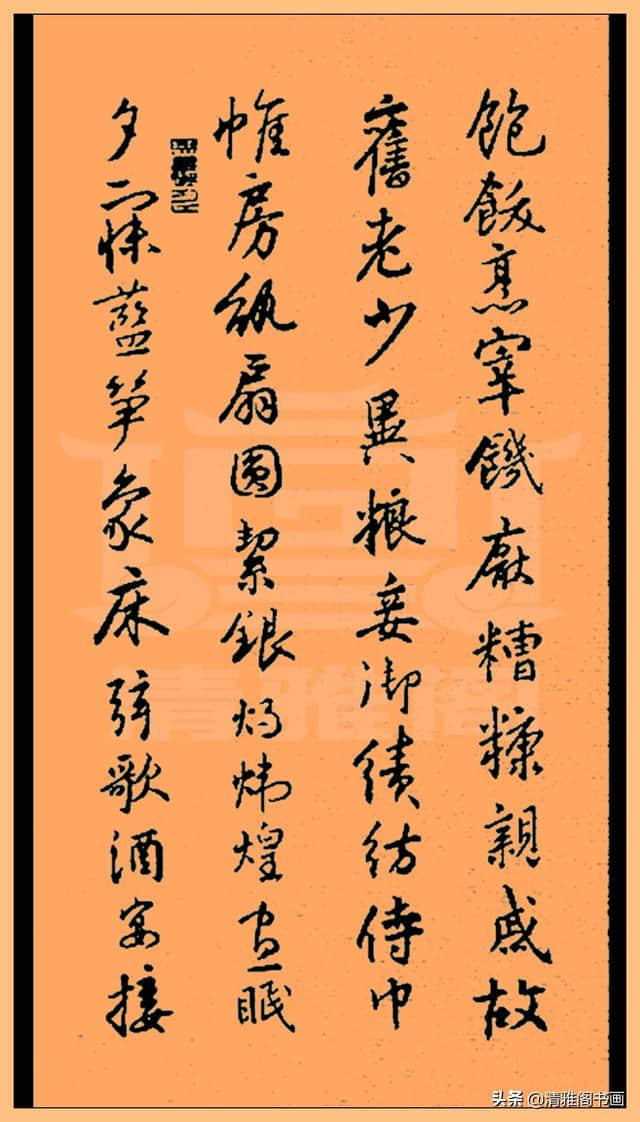 飽飫烹宰饑厭糟糠親戚故
舊老少異粮妾御績紡侍巾
帷房紈扇圓絜銀燭煒煌晝眠
夕寐藍笋象床弦歌酒宴接
清雅阁
头条 @清雅阁书画